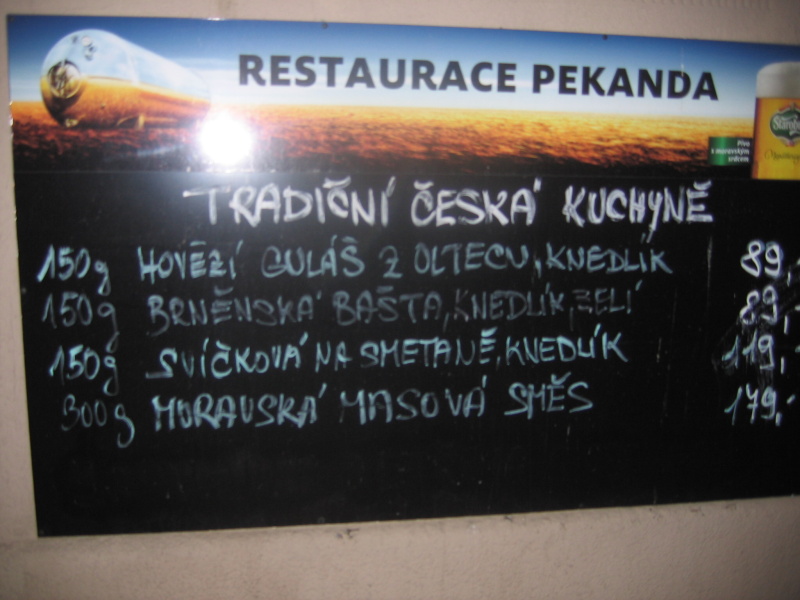 RESTAURACE PEKANDA
Pivo
s moravským
srdcem
TRADIČNÍ ČESKÁ KUCHYNĚ
150g HOVĚZÍ GULÁŠ Z OLTECU, KNEDLÍK 89,-
150g BRNĚNSKÁ BAŠTA, KNEDLÍK, ZELÍ 89,-
150g SVÍČKOVÁ NA SMETANĚ, KNEDLÍK 119,-
300g MORAVSKÁ MASOVÁ SMĚS 179,-